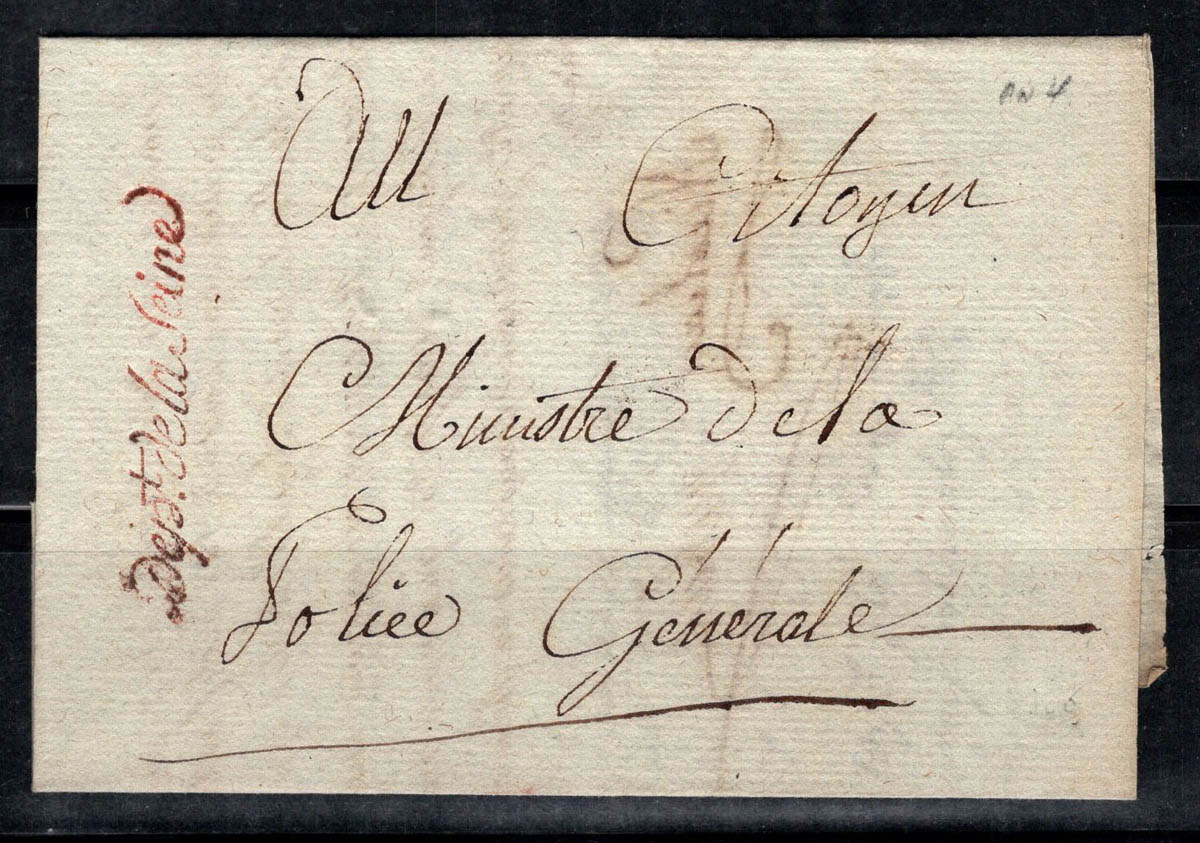 an 4
Au Citoyen
Ministre de la
Police Générale
Dept. de la Seine